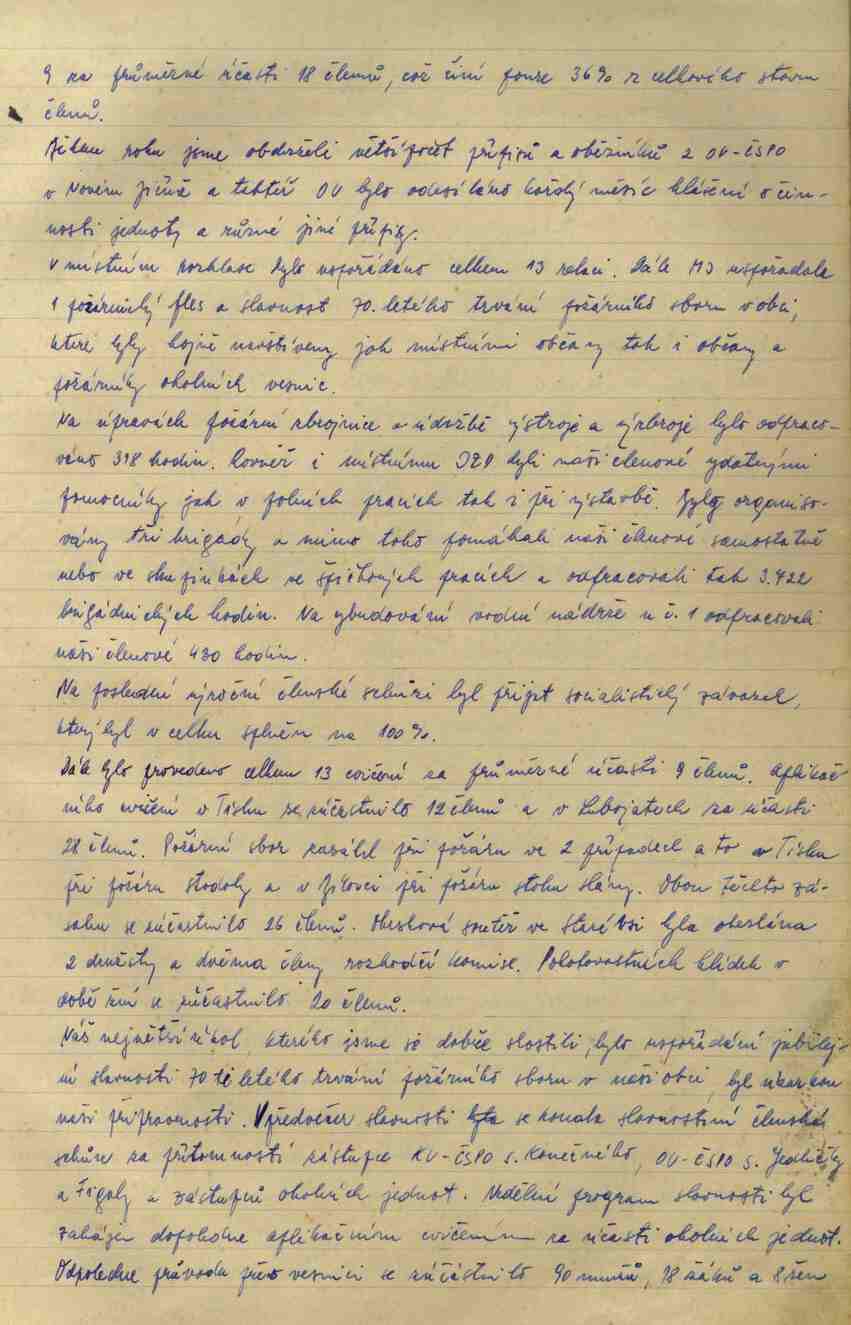 9 za průměrné účasti 18 členů, což činí pouze 36% z celkového stavu
členů.
Během roku jsme obdrželi větší počet přípisů a oběžníků z OV-ČSPO
v Novém Jičíně a taktéž OV bylo odesíláno každý měsíc hlášení o čin-
nosti jednoty a různé jiné přípisy.
V místním rozhlase bylo uspořádáno celkem 13 relací. Dále MJ uspořádala
1 požárnický ples a slavnost 70. letého trvání požárního sboru v obci,
které byly hojně navštíveny jak místními občany tak i občany a
požárníky okolních vesnic.
Na úpravách požární zbrojnice a údržbě výstroje a výzbroje bylo odpraco-
váno 318 hodin. Rovněž i místnímu JZD byli naši členové zdatnými
pomocníky jak v polních pracích tak i při výstavbě. Byly organiso-
vány tři brigády a mimo toho pomáhali naši členové samostatně
nebo ve skupinkách ve špičkových pracích a odpracovali tak 3.422
brigádnických hodin. Na vybudování vodní nádrže u č. 1 odpracovali
naši členové 430 hodin.
Na poslední výroční členské schůzi byl přijat socialistický závazek,
který byl v celku splněn na 100%.
Dále bylo provedeno celkem 13 cvičení za průměrné účasti 9 členů. Aplikač
ního cvičení v Tísku se zúčastnilo 12 členů a v Lubojatech za účasti
28 členů. Požární sbor zasáhl při požáru ve 2 případech a to v Tísku
při požáru stodoly a v Jílovci při požáru stohu slámy. Obou těchto zá-
sahu se zúčastnilo 26 členů. Okrsková soutěž ve Staré Vsi byla obeslána
2 družstvy a dvěma členy rozhodčí komise. Pohotovostních hlídek v
době žní se zúčastnilo 20 členů.
Náš největší úkol, kterého jsme se dobře zhostili, bylo uspořádání jubilej-
ní slavnosti 70 ti letého trvání požárního sboru v naší obci, byl ukázkou
naší připravenosti. V předvečer slavnosti se konala slavnostní členská
schůze za přítomnosti zástupce KV-ČSPO s. Konečného, OV-ČSPO s. Jedličky
a Figoly a zástupců okolních jednot. Nedělní program slavnosti byl
zahájen dopoledne aplikačním cvičením za účasti okolních jednot.
Odpoledne průvodu přes vesnici se zúčastnilo 90 mužů, 78 žáků a 8 žen